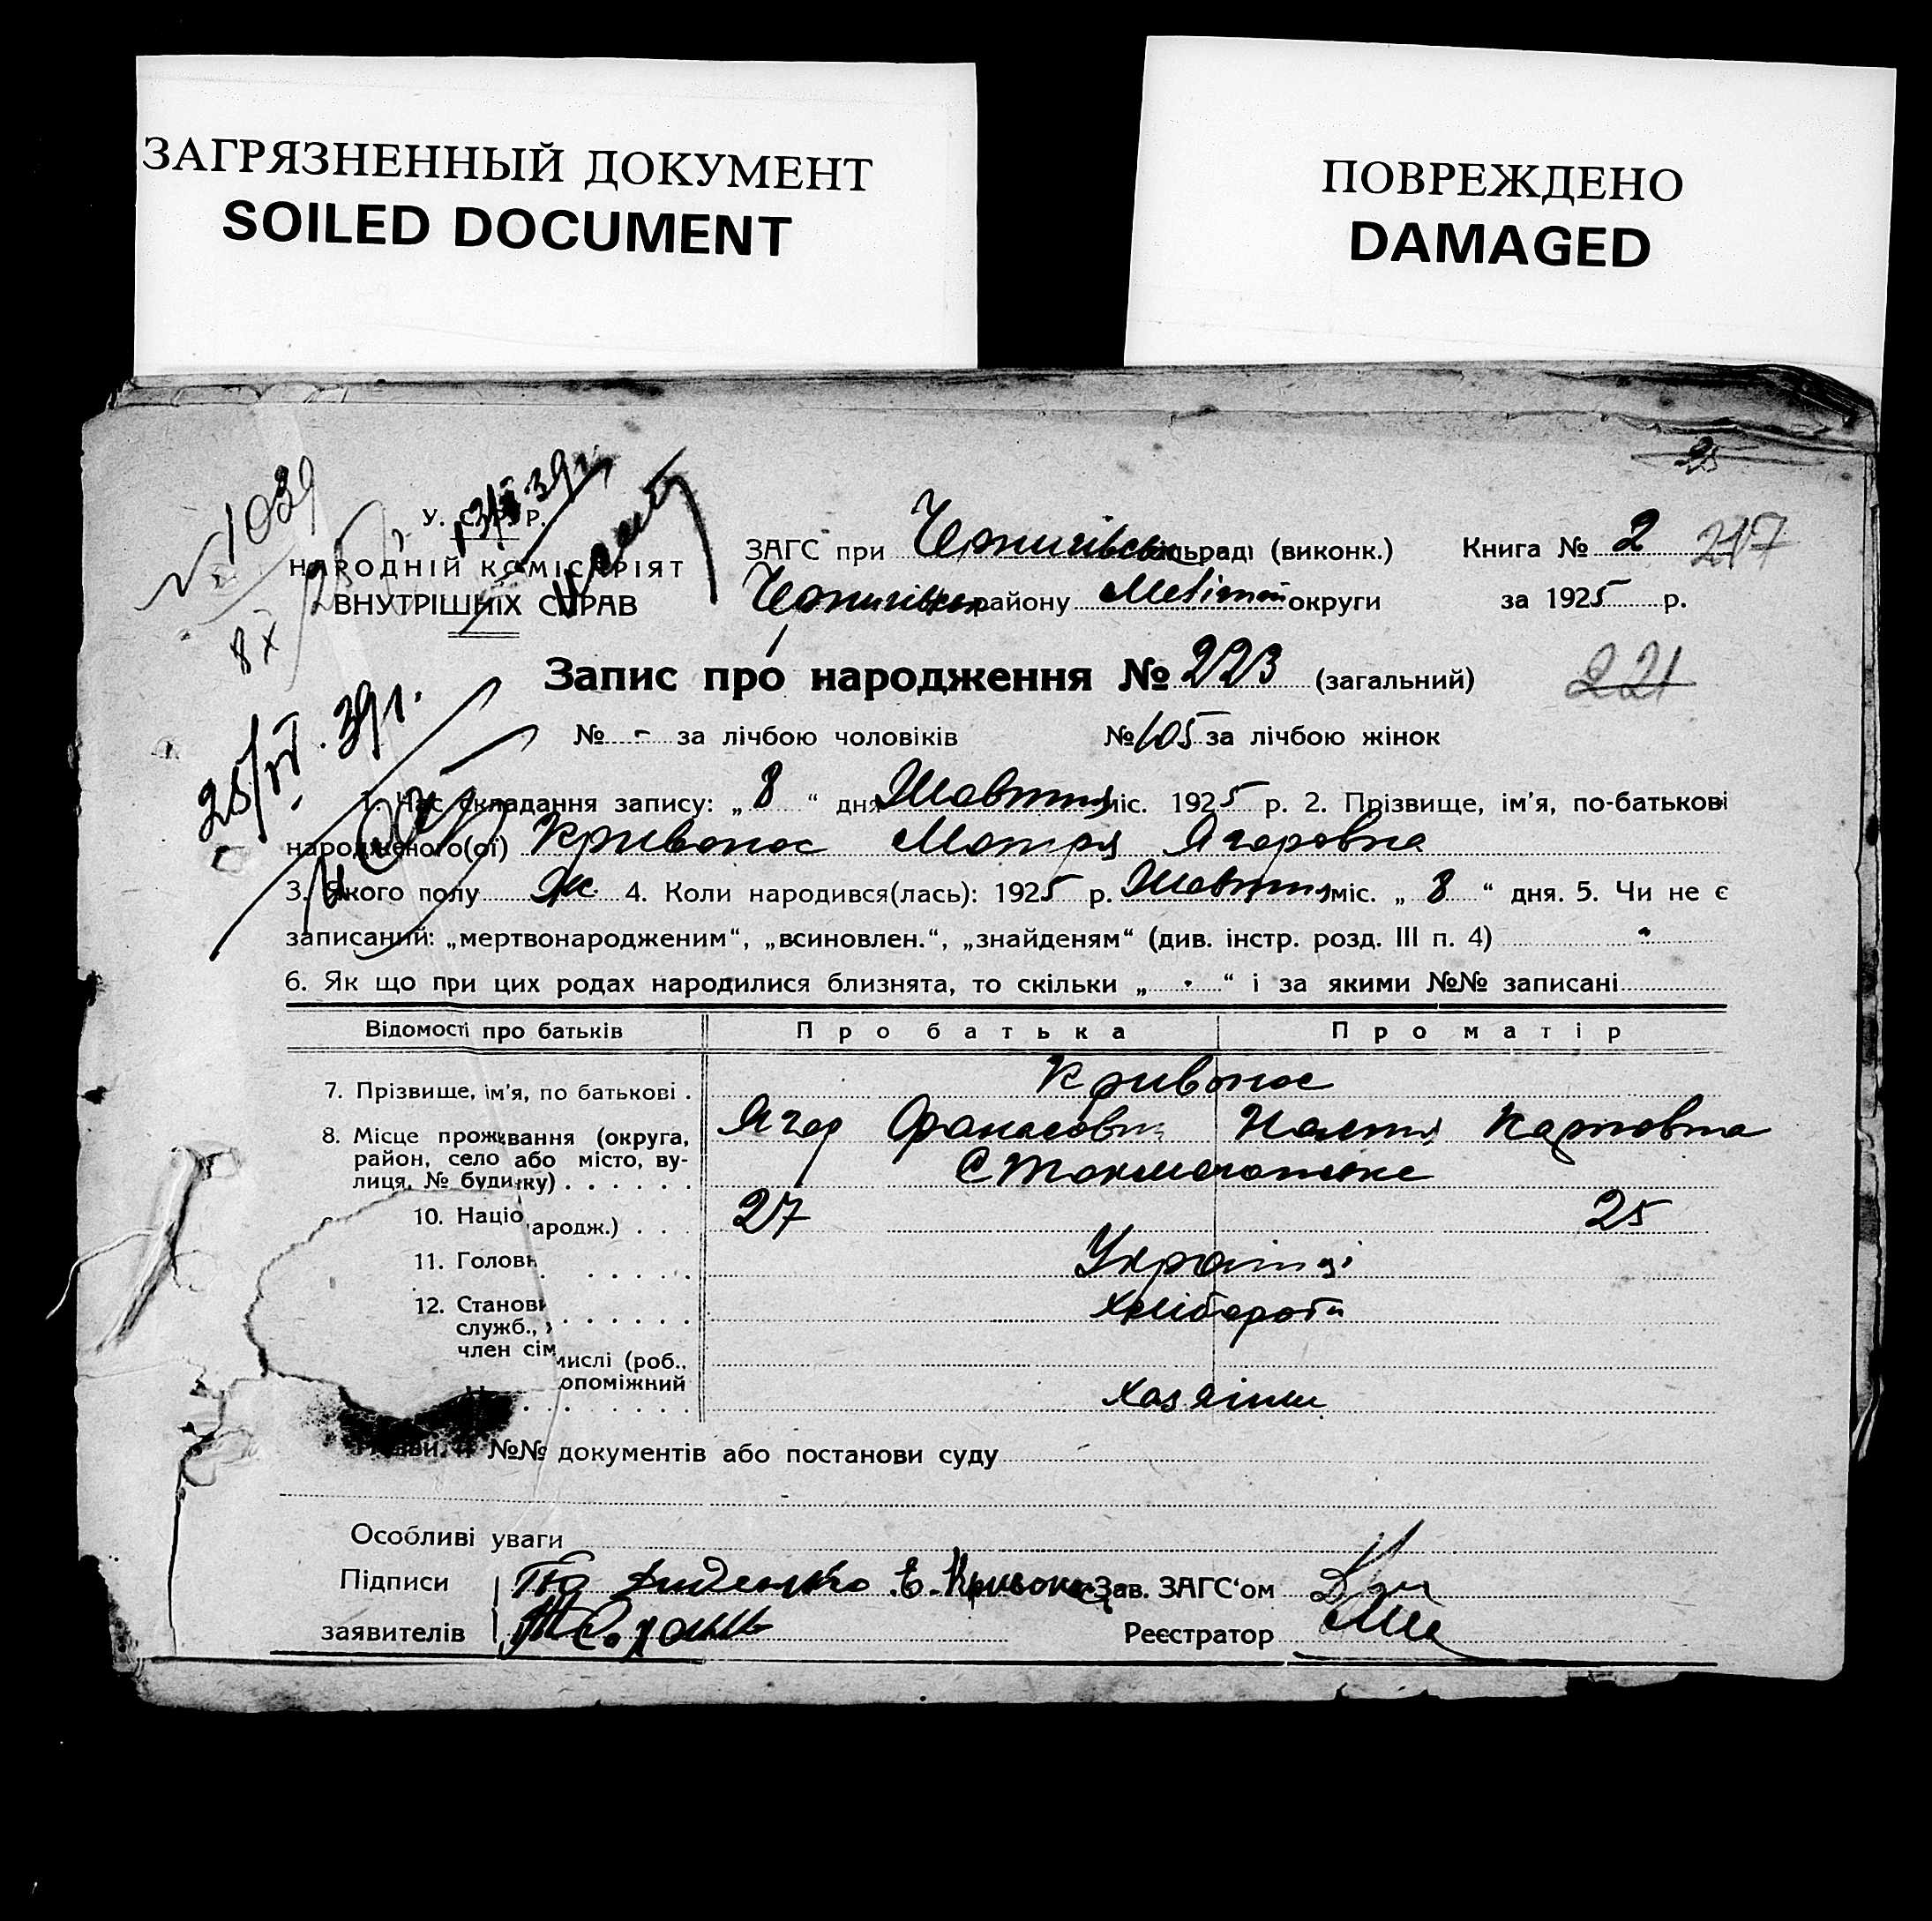 ЗАГРЯЗНЕННЫЙ ДОКУМЕНТ
SOILED DOCUMENT
ПОВРЕЖДЕНО
DAMAGED
№ 1039
8/X
25/VI. 39 г.
У. С. Р. Р.
НАРОДНІЙ КОМІСАРІЯТ
ВНУТРІШНІХ СПРАВ
ЗАГС при Чернигівськ сільраді (виконк.) Книга № 2 217
Чернигівськ району Меліт. округи за 1925 р.
Запис про народження № 223 (загальний) 221
№ - за лічбою чоловіків № 105 за лічбою жінок
1. Час складання запису: „ 8 “ дня Жовтня міс. 1925 р. 2. Прізвище, ім'я, по-батькові
народженого(ої) Кривонос Мотря Ягоровна
3. Якого полу ж. 4. Коли народився(лась): 1925 р. Жовтня міс. „ 8 “ дня. 5. Чи не є
записаний: „мертвонародженим“, „всиновлен.“, „знайденям“ (див. інстр. розд. III п. 4)
6. Як що при цих родах народилися близнята, то скільки „ “ і за якими №№ записані
Відомості про батьків Про батька Про матір
7. Прізвище, ім'я, по батькові . Кривонос
Ягор Фанасовт Настя Карповна
8. Місце проживання (округа,
район, село або місто, ву-
лиця, № будинку) . . . . . . С Токмачанське
10. Націо ародж.) . . . 27 25
11. Головн . . . . . Українці
12. Станови . . . . . . Хлібороби
служб.,
член сім мислі (роб.,
опоміжний
. . . . . . Хазяіни
№№ документів або постанови суду
Особливі уваги
Підписи Диденко Е. Кривонос Зав. ЗАГС'ом
заявителів Реєстратор